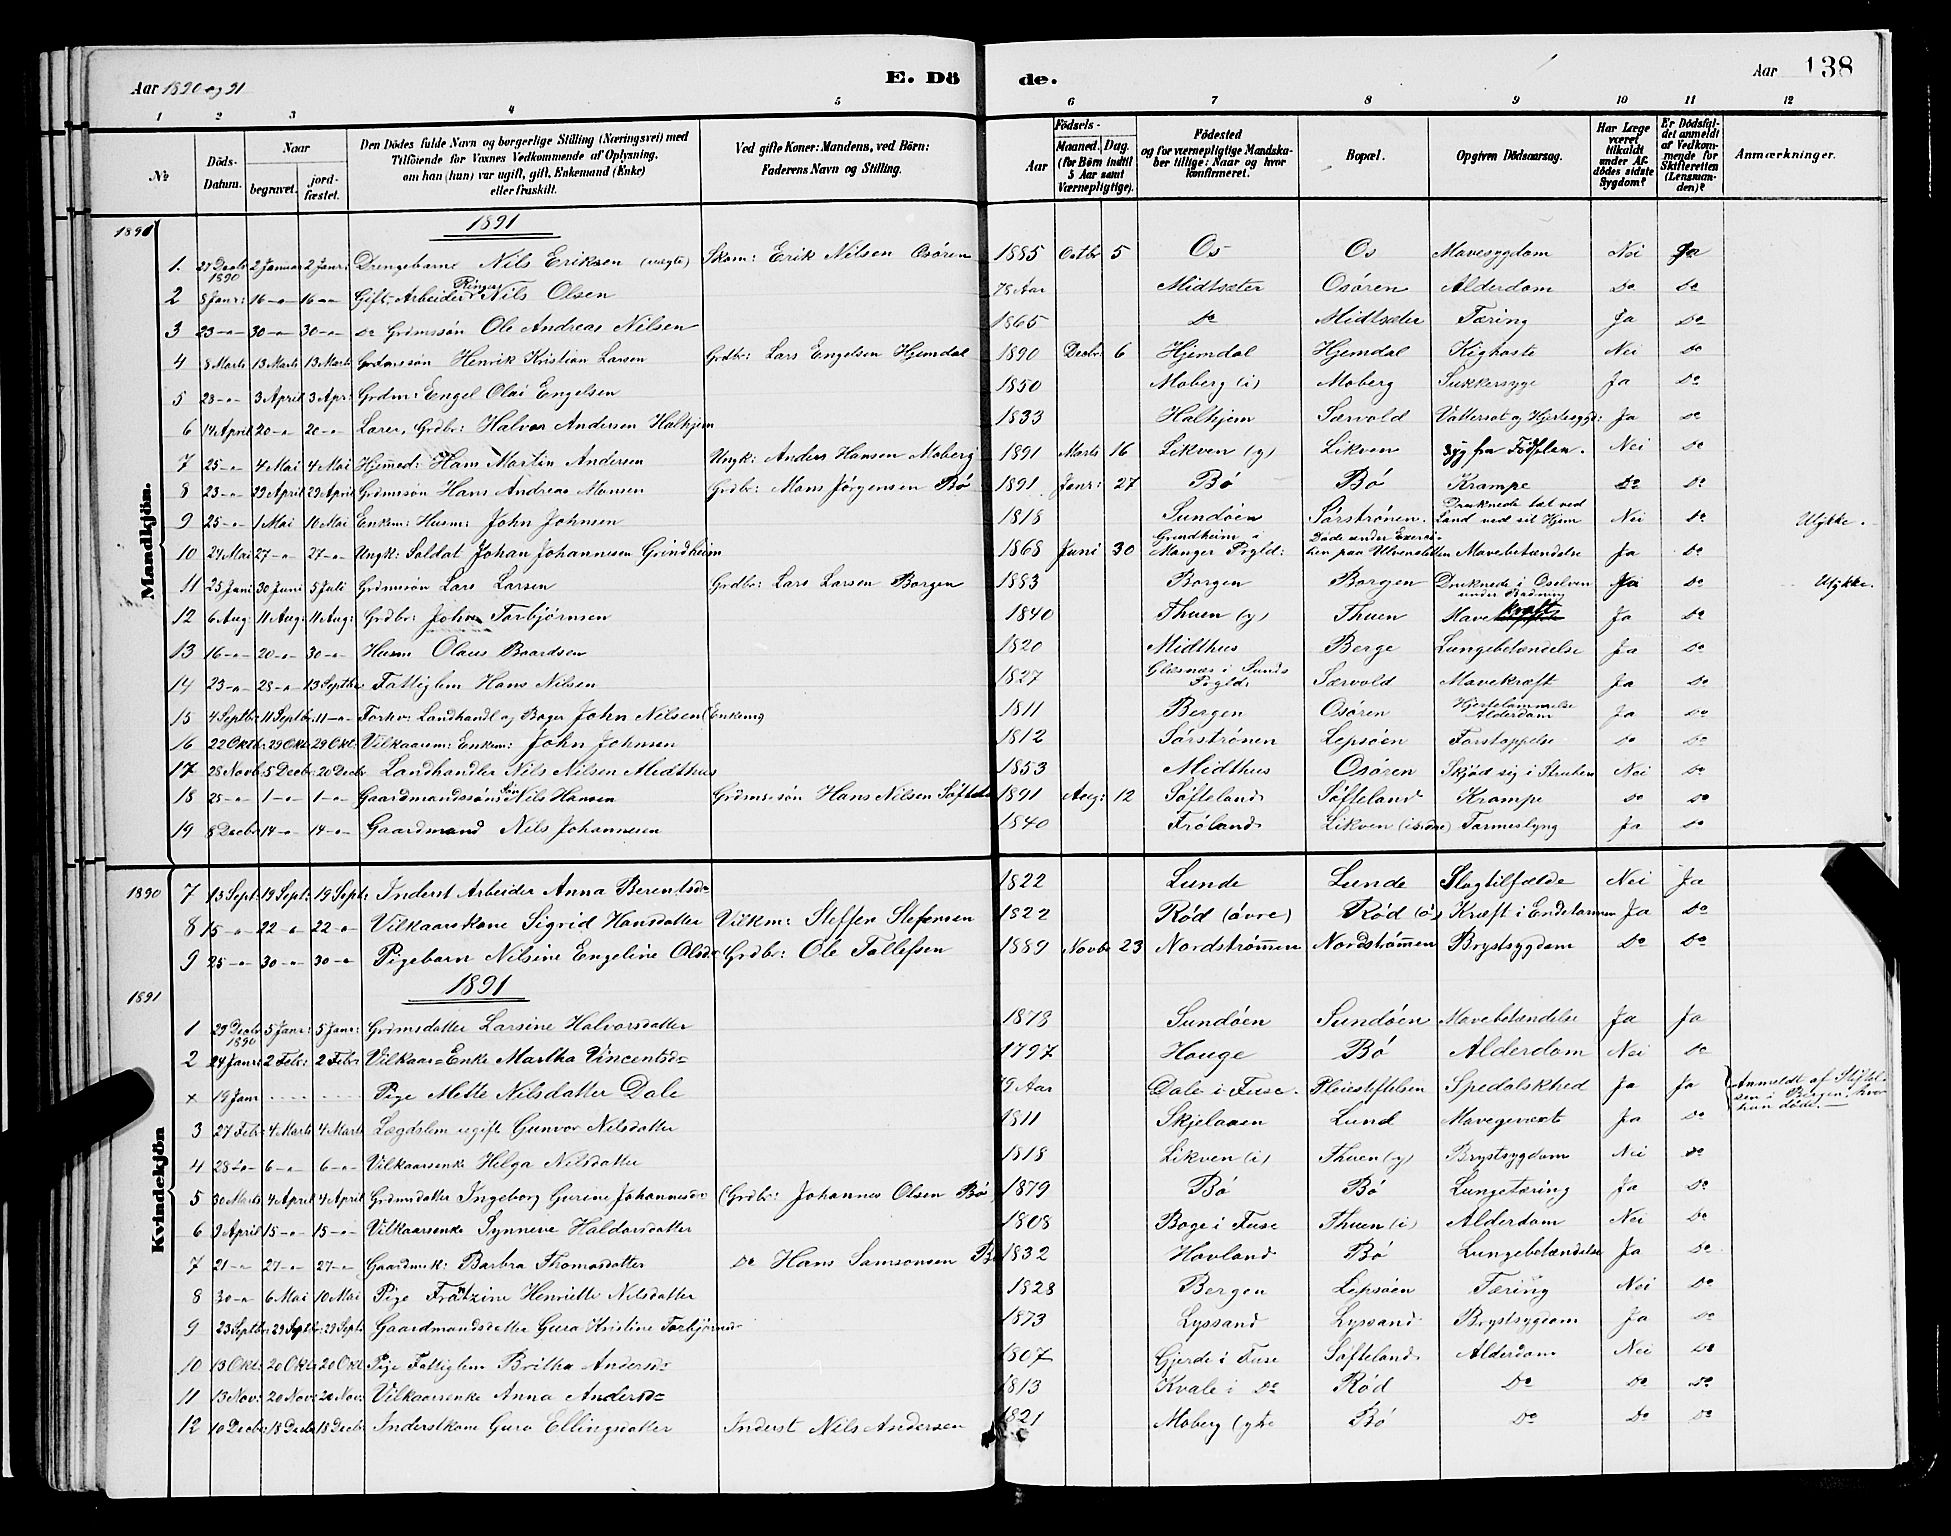 Aar 1890 og 91
E. Dö de.
Aar 138
1 2 3 4 5 6 7 8 9 10 11 12
№
Döds-Datum.
Naar begravet. jordfæstet.
Den Dödes fulde Navn og borgerlige Stilling (Næringsvei) med Tilföiende for Voxnes Vedkommende af Oplysning, om han (hun) var ugift, gift, Enkemand (Enke) eller fraskilt.
Ved gifte Koner: Mandens, ved Börn: Faderens Navn og Stilling.
Aar
Födsels-
Maaned. Dag. (for Börn indtil 5 Aar samt Værnepligtige).
Födested og for værnepligtige Mandskaber tillige: Naar og hvor konfirmeret.
Bopæl.
Opgiven Dödsaarsag.
Har Læge været tilkaldt under Afdödes sidste Sygdom?
Er Dödsfaldet anmeldt af Vedkommende for Skifteretten (Lensmanden)?
Anmærkninger.
Mandkjön.
1891
1891
1. 27 Decbr 1890 2 Januar 2 Janr: Drengebarne Nils Eriksen (uægte) Skom: Erik Nilsen Osören 1885 Octbr 5 Os Os Mavesygdom Nei Ja
2 8 Janr: 16 -"- 16 -"- Gift Arbeider Ringer Nils Olsen 78 Aar Midtsæter Osören Alderdom Do Do
3 23 -"- 30 -"- 30 -"- Do Grdmssön Ole Andreas Nilsen 1865 Do Midtsæter Tæring Ja Do
4 8 Marts 13 Marts 13 Marts Grdmssön Henrik Kristian Larsen Grdbr: Lars Engelsen Hjemdal 1890 Decbr: 6 Hjemdal Hjemdal Kighoste Nei Do
5 23 -"- 3 April 3 Apr: Grdm: Engel Olai Engelsen 1850 Moberg (i) Moberg Sukkersyge Ja Do
6 14 April 20 -"- 20 -"- Lærer, Grdbr: Halvor Andersen Halhjem 1833 Halhjem Særvold Vattersot og Hjertesygd: Ja Do
7 25 -"- 4 Mai 4 Mai Hjemmed: Hans Martin Andersen Ungk: Anders Hansen Moberg 1891 Marts 16 Likven (y) Likven syg fra Födslen. Nei Do
8 23 -"- 29 April 29 April Grdmssön Hans Andreas Monsen Grdbr: Mons Jörgensen Bö 1891 Janr: 27 Bö Bö Krampe Do Do
9 25 -"- 1 Mai 10 Mai Enkem: Husm: John Johnsen 1818 Sundöen Sörströnen. Druknede tæt ved Land ved sit Hjem Nei Do Ulykke.
10 24 Mai 27 -"- 27 -"- Ungk: Soldat Johan Johannesen Grindheim 1868 Juni 30 Grindheim i Manger Prgld: Döde under Exercitien paa Ulvensletten Mavebetændelse Ja Do
11 25 Juni 30 Juni 5 Juli Grdmssön Lars Larsen Grdbr: Lars Larsen Borgen 1883 Borgen Borgen Druknede i Oselven under Badning Do Ulykke.
12 6 Aug: 11 Aug: 11 Aug: Grdbr: John Torbjörnsen 1840 Thuen (y) Thuen Mavekræft Ja Do
13 16 -"- 20 -"- 30 -"- Husm Olaus Baardsen 1820 Midthus Berge Lungebetændelse Ja Do
14 23 -"- 28 -"- 13 Septbr Fattiglem Hans Nilsen 1827 Glæsnæs i Sunds Prgld: Særvold Mavekræft Ja Do
15 4 Septbr 11 Septbr 11 -"- Forhv: Landhandl og Bager John Nilsen (Enkem) 1811 Bergen Osören Hjertelammelse Alderdom Ja Do
16 22 Oktb: 29 Okt: 29 Okt: Vilkaarm: Enkem: John Johnsen 1812 Sörströnen Lepsöen Forstoppelse Do Do
17 28 Novb: 5 Decbr 20 Decbr Landhandler Nils Nilsen Midthus 1853 Midthus Osören Skjöd sig i Struben Nei Do
18 25 -"- 1 -"- 1 -"- Gaardmandssöns Sön Nils Hansen Grdmssön Hans Nilsen Söftela 1891 Aug: 12 Söfteland Söfteland Krampe Do Do
19 8 Decbr 14 -"- 14 -"- Gaardmand Nils Johannesen 1840 Fröland Likven (indre) Tarmeslyng Ja Do
Kvindekjön
1890 7 13 Sept: 19 Sept: 19 Sept: Inderst Arbeider Anna Berentsdr 1822 Lunde Lunde Slagtilfælde Nei Ja
8 15 -"- 22 -"- 22 -"- Vilkaarskone Sigrid Hansdatter Vilkm: Steffen Stefensen 1822 Röd (övre) Röd (ö) Kræft i Endetarmen Ja Do
9 25 -"- 30 -"- 30 -"- Pigebarn Nilsine Engeline Olsdr Grdbr: Ole Tollefsen 1889 Novbr 23 Nordströnnen Nordströnnen Brystsygdom Do Do
1891
1891
1 29 Decbr 1890 5 Janr: 5 Janr: Grdmsdatter Larsine Halvorsdatter 1873 Sundöen Sundöen Mavebetændelse Ja Ja
2 24 Janr: 2 Feb: 2 Febr Vilkaar=Enke Martha Vincentsdr 1797 Houge Bö Alderdom Nei Do
x 19 Janr Pige Mette Nilsdatter Dale 79 Aar Dale i Fuse. Pleiestiftelsen Spedalskhed Ja Ja Anmeldt af Stiftelsen i Bergen, hvor hun döde.
3 27 Feb: 4 Marts 4 Marts Lægdslem ugift Gunvor Nilsdatter 1811 Skjelaaen Lund Mavegevext Ja Do
4 28 -"- 6 -"- 6 -"- Vilkaarsenke Helga Nilsdatter 1818 Likven (i) Thuen (y) Brystsygdom Nei Do
5 30 Marts 4 April 4 April Grdmsdatter Ingeborg Gurine Johannesdr (Grdbr: Johannes Olsen Bö 1879 Bö Bö Lungetæring Ja Do
6 9 April 15 -"- 15 -"- Vilkaarsenke Synneve Haldorsdatter 1808 Boge i Fuse Thuen (i) Alderdom Nei Do
7 21 -"- 27 -"- 27 -"- Gaardmk: Barbra Thomasdatter Do Hans Samsonsen Bö 1832 Hovland Bö Lungebetændelse Ja Do
8 30 -"- 6 Mai 10 Mai Pige Frantzine Henriette Nilsdatter 1828 Bergen Lepsöen Tæring Nei Do
9 23 Septbr: 29 Septbr 29 Sept: Gaardmandsdatter Guro Kristine Torbjörnsdr 1873 Lyssand Lyssand Brystsygdom Ja Do
10 13 Okt: 20 Okt: 20 Okt Pige Fattiglem Britha Andersdr 1807 Gjerde i Fuse Söfteland Alderdom Nei Do
11 13 Nov: 20 Nov: 20 Nov: Vilkaarsenke Anna Andersdr 1813 Kvale i Do Röd Do Do Do
12 10 Decbr 18 Decbr 18 Decbr Inderstkone Guro Ellingsdatter Inderst Nils Andersen 1821 Moberg (ytre Bö Do Do Do